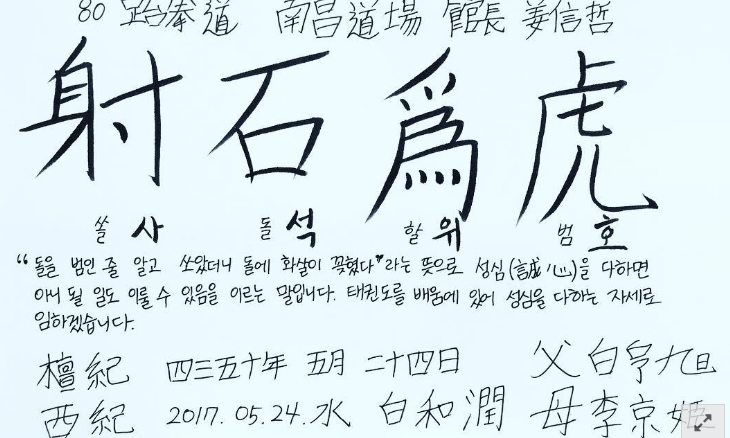 80 跆拳道 南昌道場 館長 姜信哲
射石爲虎
쏠 사 돌 석 할 위 범 호
"돌을 범인 줄 알고 쏘았더니 돌에 화살이 꽂혔다"라는 뜻으로 성심(誠心)을 다하면
아니 될 일도 이룰 수 있음을 이르는 말입니다. 태권도를 배움에 있어 성심을 다하는 자세로
임하겠습니다.
檀紀 四三五十年 五月 二十四日 父 白亨九
西紀 2017. 05. 24. 水 白和潤 母 李京姬